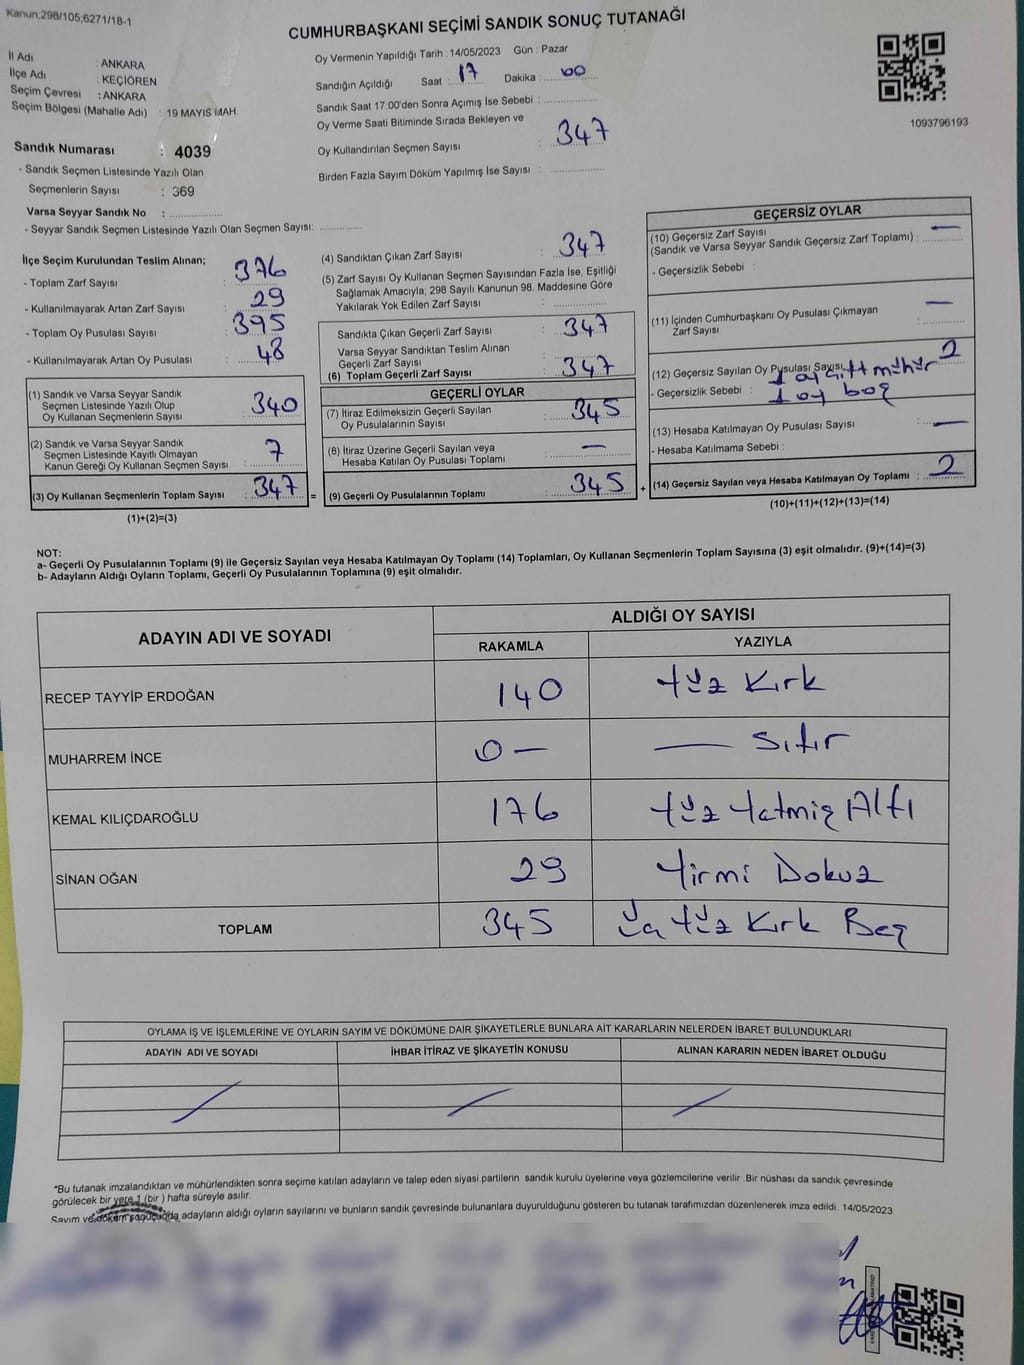 Kanun;298/105;6271/18-1
CUMHURBAŞKANI SEÇİMİ SANDIK SONUÇ TUTANAĞI
İl Adı : ANKARA
İlçe Adı : KEÇİÖREN
Seçim Çevresi : ANKARA
Seçim Bölgesi (Mahalle Adı) : 19 MAYIS MAH.
Sandık Numarası : 4039
- Sandık Seçmen Listesinde Yazılı Olan
Seçmenlerin Sayısı : 369
Varsa Seyyar Sandık No : ................
- Seyyar Sandık Seçmen Listesinde Yazılı Olan Seçmen Sayısı: ............
Oy Vermenin Yapıldığı Tarih : 14/05/2023 Gün : Pazar
Sandığın Açıldığı Saat : 17 Dakika : 00
Sandık Saat 17:00'den Sonra Açımış İse Sebebi : ................
Oy Verme Saati Bitiminde Sırada Bekleyen ve
Oy Kullandırılan Seçmen Sayısı : 347
Birden Fazla Sayım Döküm Yapılmış İse Sayısı : ................
1093796193
İlçe Seçim Kurulundan Teslim Alınan;
- Toplam Zarf Sayısı : 376
- Kullanılmayarak Artan Zarf Sayısı : 29
- Toplam Oy Pusulası Sayısı : 395
- Kullanılmayarak Artan Oy Pusulası : 48
(1) Sandık ve Varsa Seyyar Sandık
Seçmen Listesinde Yazılı Olup
Oy Kullanan Seçmenlerin Sayısı : 340
(2) Sandık ve Varsa Seyyar Sandık
Seçmen Listesinde Kayıtlı Olmayan
Kanun Gereği Oy Kullanan Seçmen Sayısı : 7
(3) Oy Kullanan Seçmenlerin Toplam Sayısı : 347
(1)+(2)=(3)
(4) Sandıktan Çıkan Zarf Sayısı : 347
(5) Zarf Sayısı Oy Kullanan Seçmen Sayısından Fazla İse, Eşitliği
Sağlamak Amacıyla; 298 Sayılı Kanunun 98. Maddesine Göre
Yakılarak Yok Edilen Zarf Sayısı : ................
Sandıkta Çıkan Geçerli Zarf Sayısı : 347
Varsa Seyyar Sandıktan Teslim Alınan
Geçerli Zarf Sayısı
(6) Toplam Geçerli Zarf Sayısı : 347
GEÇERLİ OYLAR
(7) İtiraz Edilmeksizin Geçerli Sayılan
Oy Pusulalarının Sayısı : 345
(8) İtiraz Üzerine Geçerli Sayılan veya
Hesaba Katılan Oy Pusulası Toplamı : —
= (9) Geçerli Oy Pusulalarının Toplamı : 345 +
GEÇERSİZ OYLAR
(10) Geçersiz Zarf Sayısı
(Sandık ve Varsa Seyyar Sandık Geçersiz Zarf Toplamı) : —
- Geçersizlik Sebebi :
(11) İçinden Cumhurbaşkanı Oy Pusulası Çıkmayan
Zarf Sayısı : —
(12) Geçersiz Sayılan Oy Pusulası Sayısı 2
1 oy çift mühür
- Geçersizlik Sebebi : 1 oy boş
(13) Hesaba Katılmayan Oy Pusulası Sayısı : —
- Hesaba Katılmama Sebebi :
(14) Geçersiz Sayılan veya Hesaba Katılmayan Oy Toplamı : 2
(10)+(11)+(12)+(13)=(14)
NOT:
a- Geçerli Oy Pusulalarının Toplamı (9) ile Geçersiz Sayılan veya Hesaba Katılmayan Oy Toplamı (14) Toplamları, Oy Kullanan Seçmenlerin Toplam Sayısına (3) eşit olmalıdır. (9)+(14)=(3)
b- Adayların Aldığı Oyların Toplamı, Geçerli Oy Pusulalarının Toplamına (9) eşit olmalıdır.
ADAYIN ADI VE SOYADI
ALDIĞI OY SAYISI
RAKAMLA YAZIYLA
RECEP TAYYİP ERDOĞAN 140 Yüz Kırk
MUHARREM İNCE 0 — — Sıfır
KEMAL KILIÇDAROĞLU 176 Yüz Yetmiş Altı
SİNAN OĞAN 29 Yirmi Dokuz
TOPLAM 345 Üç Yüz Kırk Beş
OYLAMA İŞ VE İŞLEMLERİNE VE OYLARIN SAYIM VE DÖKÜMÜNE DAİR ŞİKAYETLERLE BUNLARA AİT KARARLARIN NELERDEN İBARET BULUNDUKLARI
ADAYIN ADI VE SOYADI İHBAR İTİRAZ VE ŞİKAYETİN KONUSU ALINAN KARARIN NEDEN İBARET OLDUĞU
*Bu tutanak imzalandıktan ve mühürlendikten sonra seçime katılan adayların ve talep eden siyasi partilerin sandık kurulu üyelerine veya gözlemcilerine verilir .Bir nüshası da sandık çevresinde
görülecek bir yere 1 (bir ) hafta süreyle asılır.
Sayım ve döküm sonucunda adayların aldığı oyların sayılarını ve bunların sandık çevresinde bulunanlara duyurulduğunu gösteren bu tutanak tarafımızdan düzenlenerek imza edildi. 14/05/2023